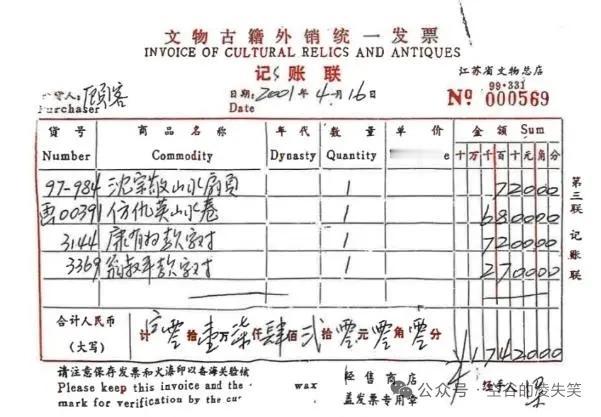 文物古籍外销统一发票
INVOICE OF CULTURAL RELICS AND ANTIQUES
记账联
江苏省文物总店
99·331
购货人：顾客
日期：2001年4月16
Nº 000569
Purchaser
Date
货号 商品名称 年代 数量 单价 金额 Sum
Number Commodity Dynasty Quantity e 十万千百十元角分
97-984 沈宗敬山水扇页 1 72000
00391 仿仇英山水卷 1 680000
3144 康有为款字对 1 720000
3369 翁叔平款字对 1 270000
合计人民币
（大写）
计 零拾壹万柒仟肆佰贰拾零元零角零分 ¥1742000
第三联 记账联
请注意保存发票和火漆印以备海关验核
Please keep this invoice and the wax
mark for verification by the cu
经售商店
盖发票专用章
经手人
公众号·空谷的凌失笑